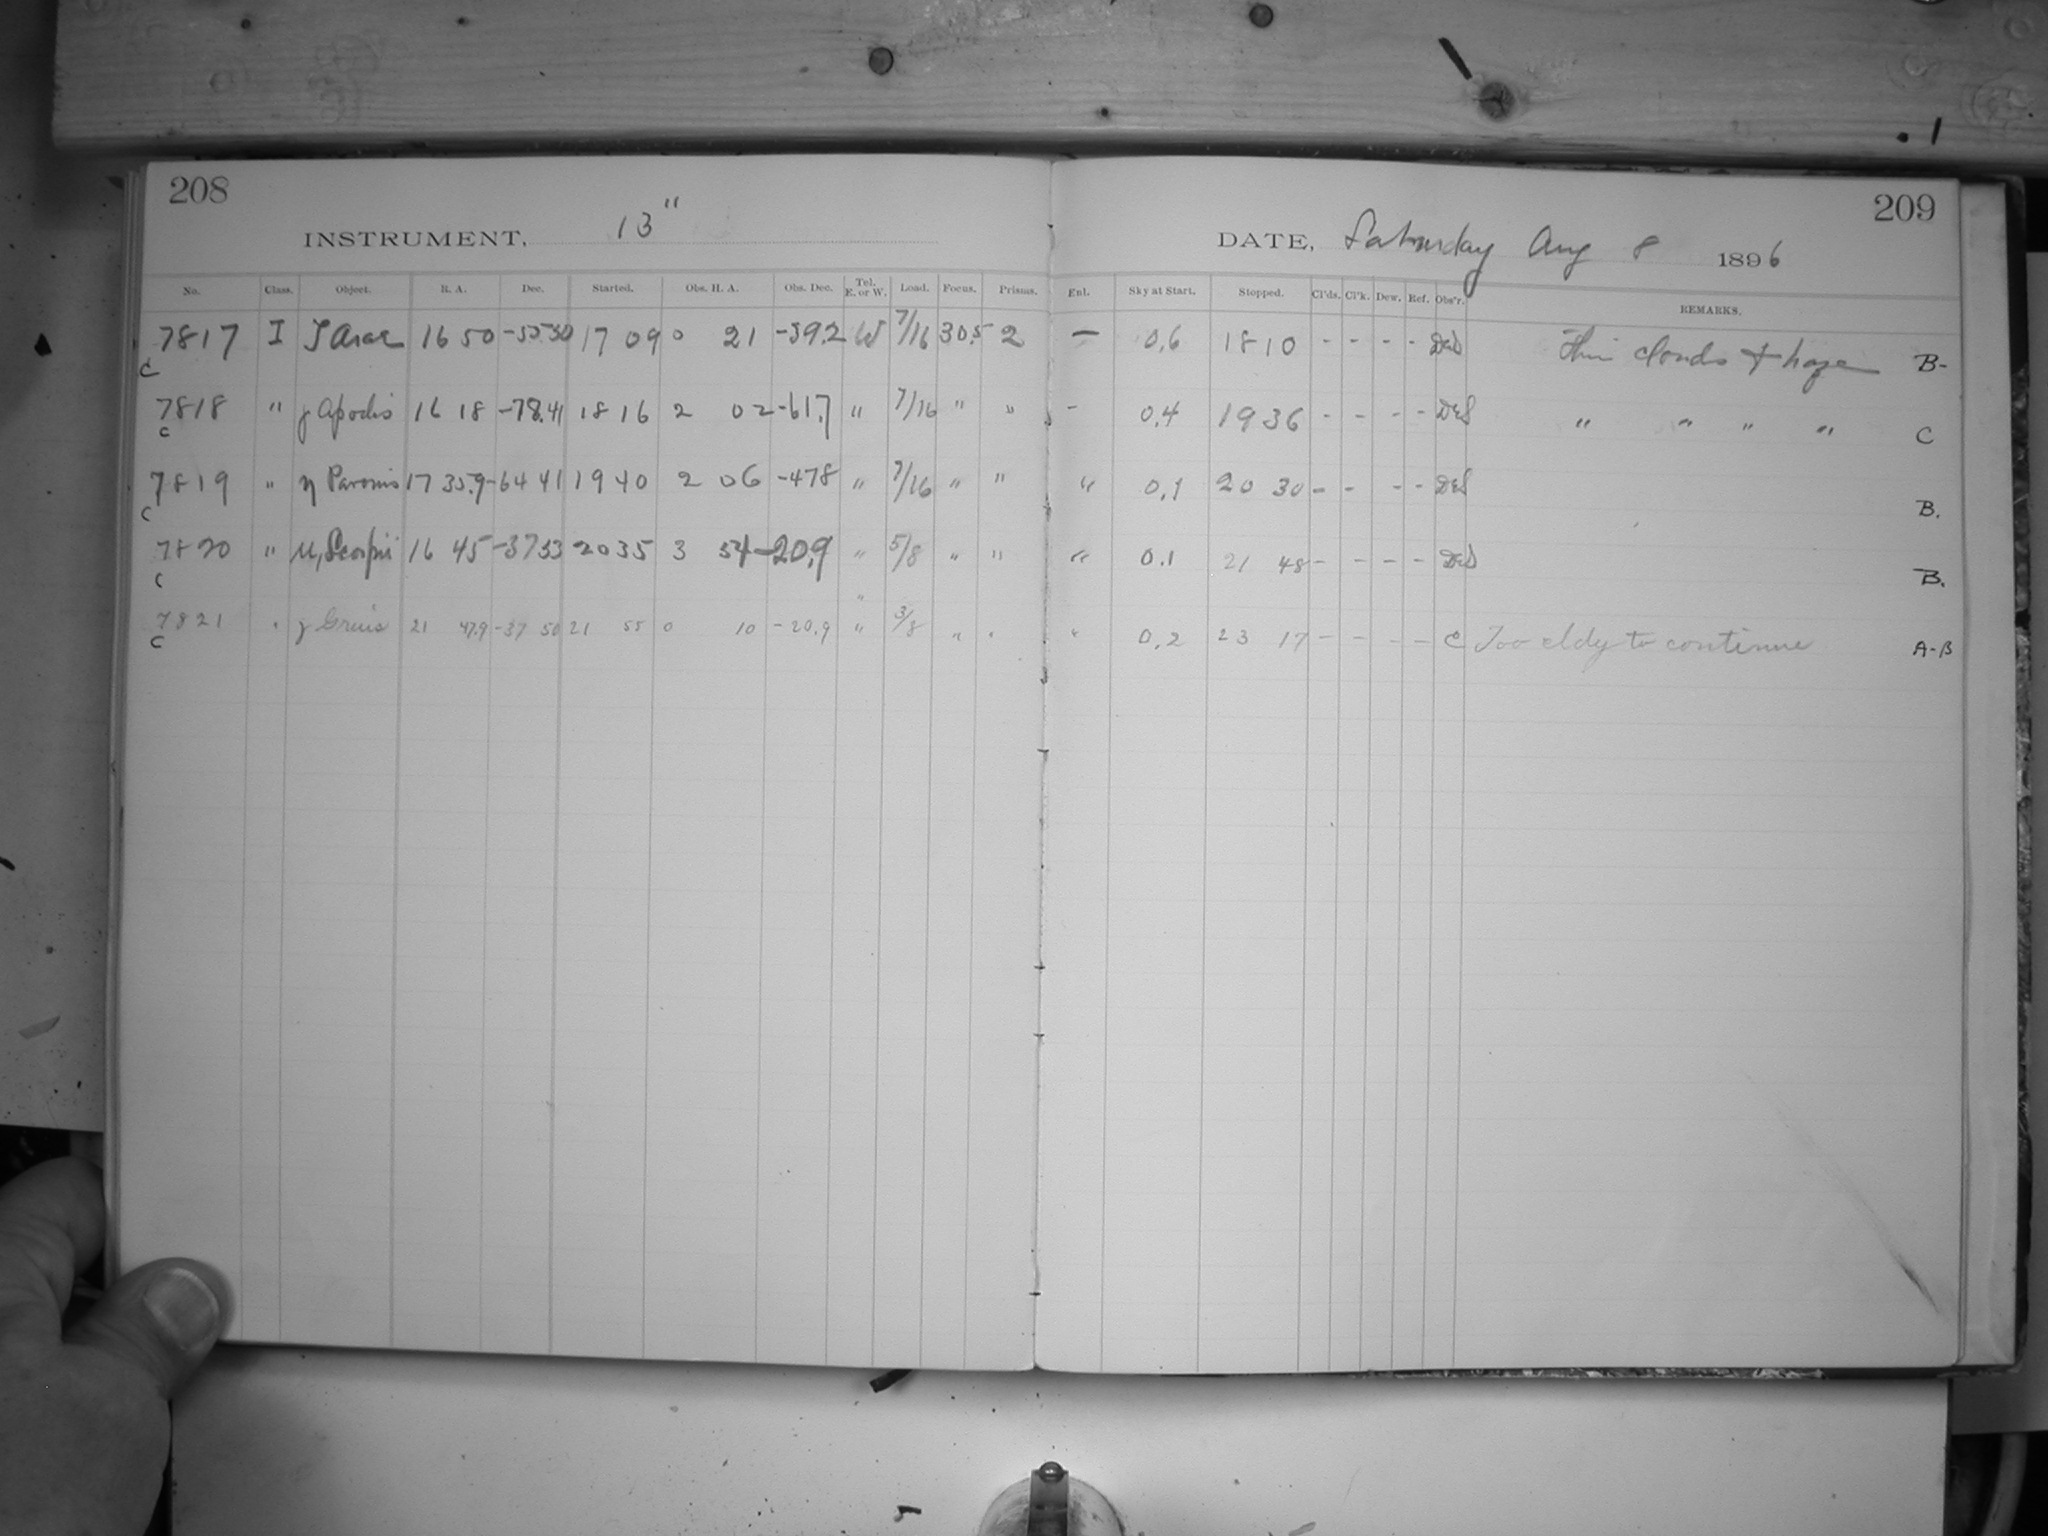 208
209
INSTRUMENT, 13"
DATE, Saturday Aug 8 1896
No. Class. Object. R. A. Dec. Started. Obs. H. A. Obs. Dec. Tel. E. or W. Load. Focus. Prisms. Enl. Sky at Start. Stopped. Cl'ds. Cl'k. Dew. Ref. Obs'r. REMARKS.
7817 I Arae 16 50 -55.50 17 09 0 21 -39.2 W 7/16 30.5 2 - 0.6 18 10 - - - - DeD Thin clouds & haze B-
C
7818 " γ Apodis 16 18 -78.41 18 16 2 02 -61.7 " 7/16 " " - 0.4 19 36 - - - - " " " " C
C
7819 " η Pavonis 17 35.9 -64 41 19 40 2 06 -478 " 7/16 " " " 0.1 20 30 - - - - B.
C
7820 " μ, Scorpii 16 45 -37 53 20 35 3 54 -20.9 " 5/8 " " " 0.1 21 48 - - - - DeD B.
C
7821 " γ Gruis 21 47.9 -37 50 21 55 0 10 -20.9 " 3/8 " " " 0.2 23 17 - - - - C Too cldy to continue A-B
C